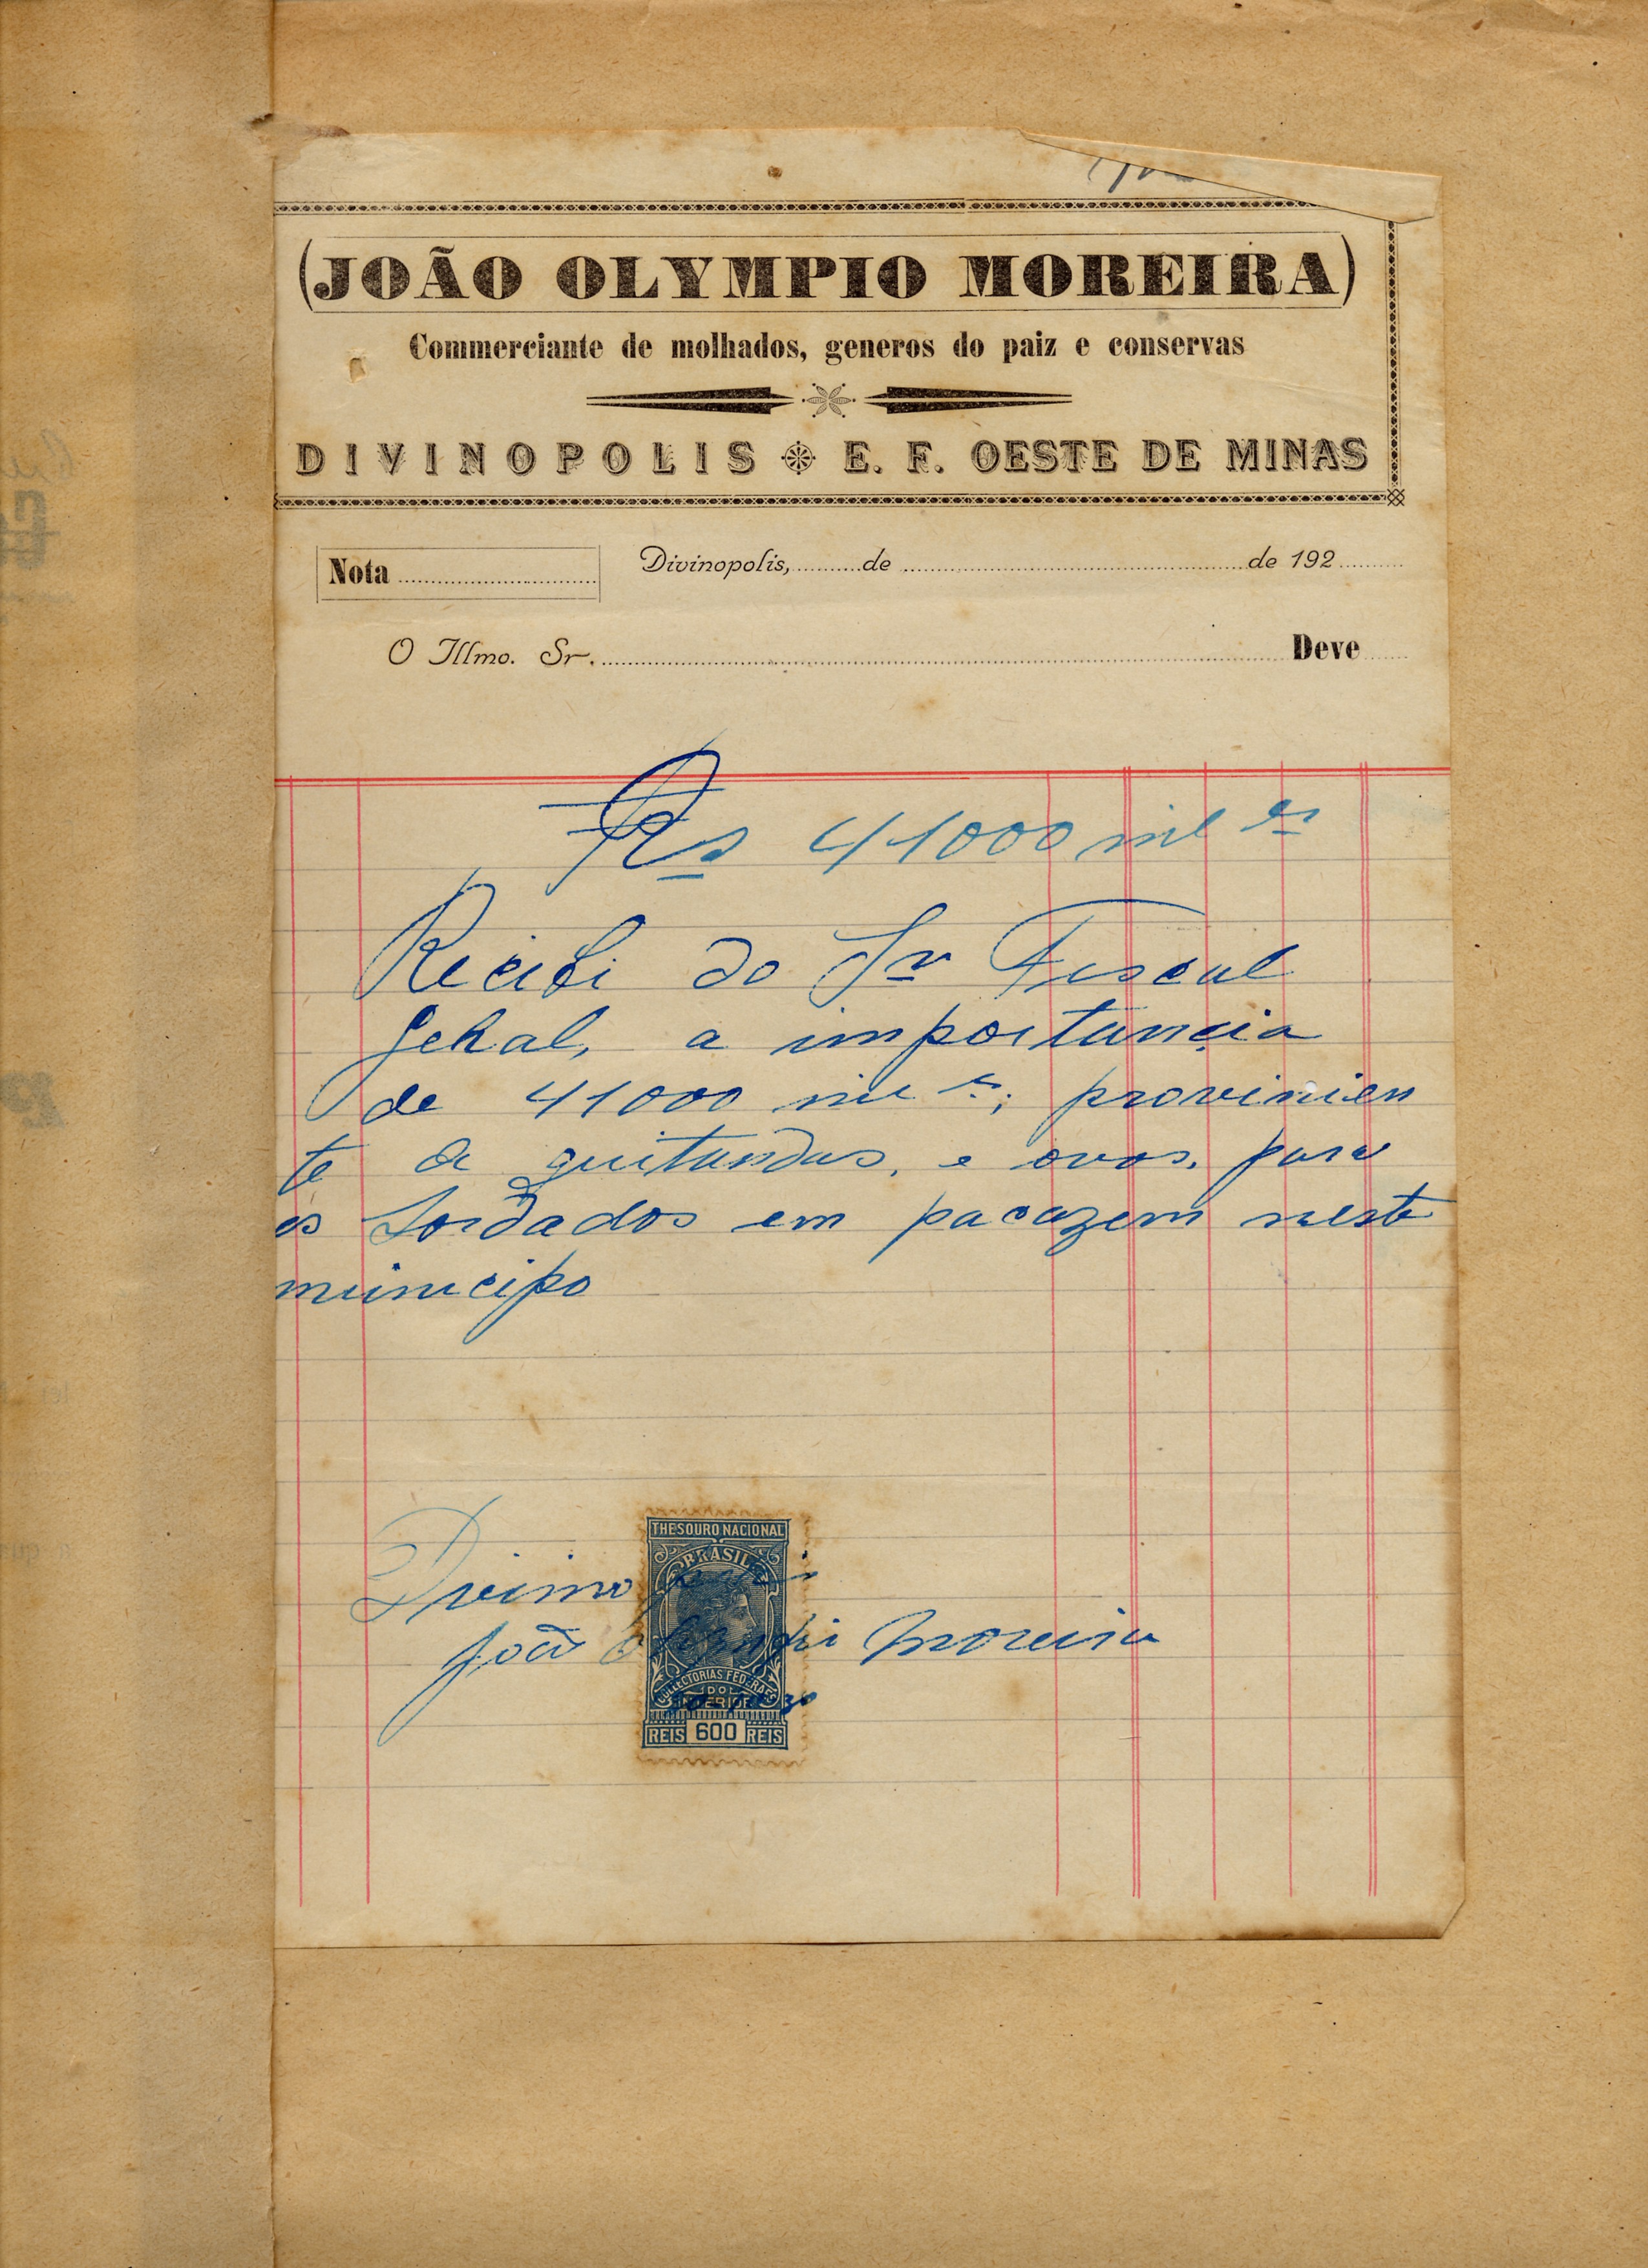 (JOÃO OLYMPIO MOREIRA)
Commerciante de molhados, generos do paiz e conservas
DIVINOPOLIS E. F. OESTE DE MINAS
Nota
Divinopolis, de de 192
O Illmo. Sr. Deve
Rs 41000 mil rs
Recibi do Sr Fiscal
gehal, a importancia
de 41000 mil rs; provinien
te a quitandas, e ovos, para
os Sordados em pacazem neste
municipo
THESOURO NACIONAL
BRASIL
Divinopolis
João Olympio Moreira
COLLECTORIAS FEDERAES
DO
INTERIOR
REIS 600 REIS